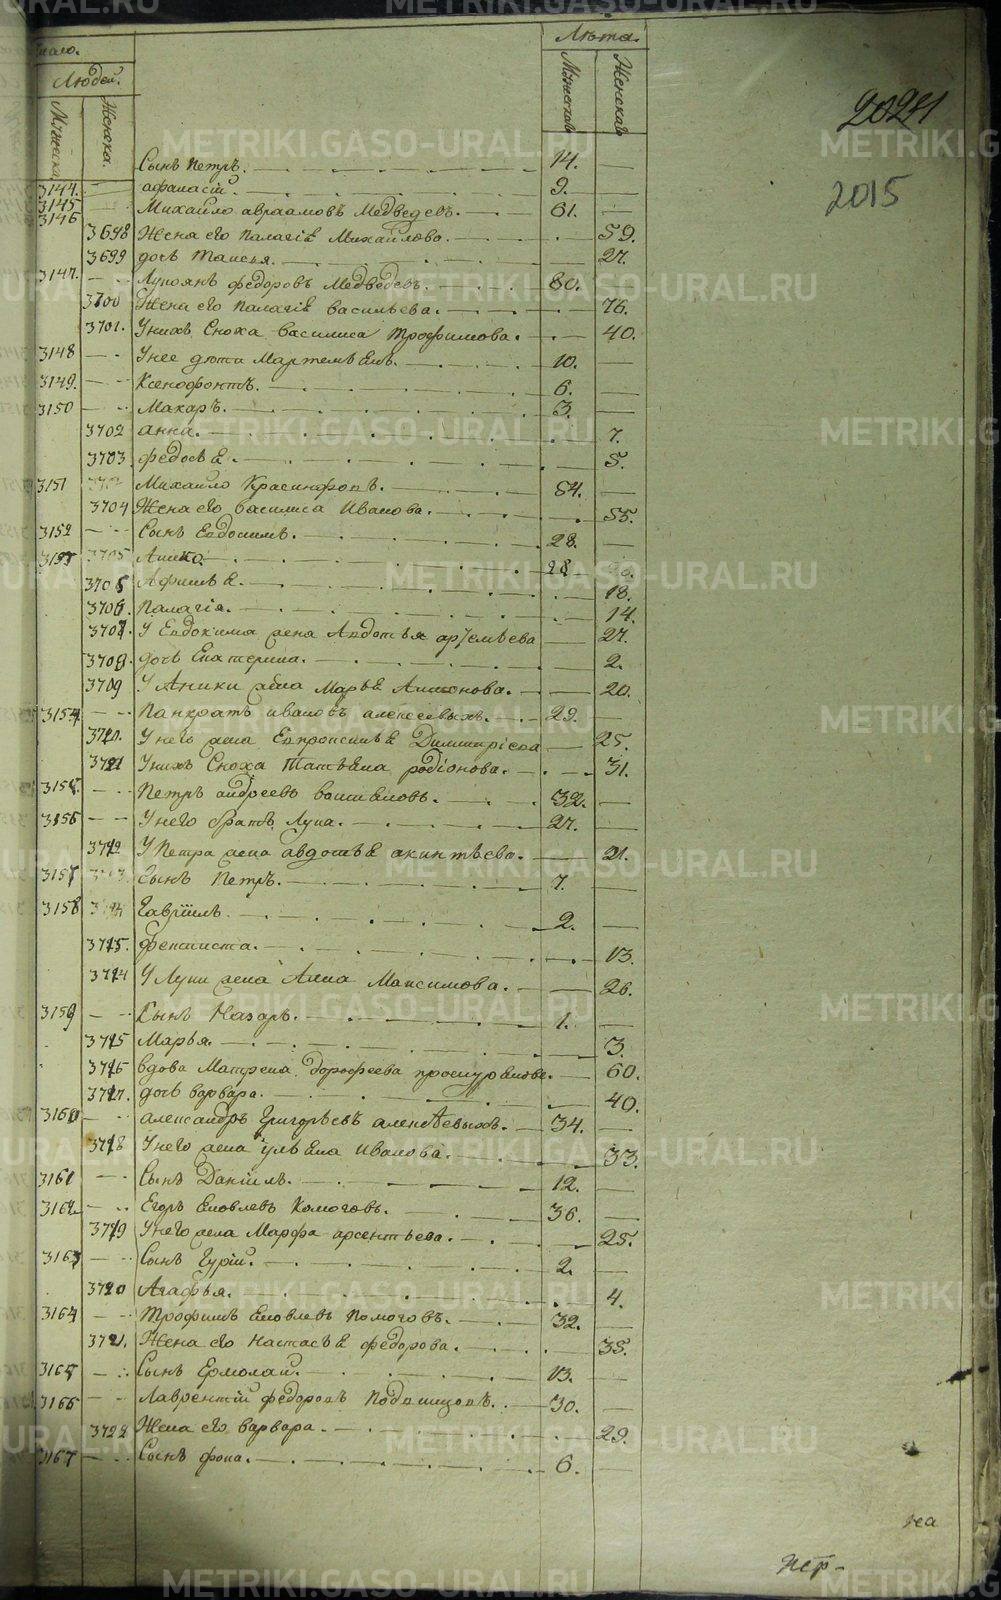 Число.
Людей.
Мужска.
Женска.
Лѣта.
Мужескаго
Женскаго
2015
Сынъ Петръ. 14.
3144. афанасій. 9.
3145 Михайло авраамовъ Медведевъ. 61.
3146
3698 Жена его Палагіѣ Михайлова. 59.
3699 дочь Таисья. 27.
3147. Лукоянъ федоровъ Медведевъ. 80.
3700 Жена его Палагіѣ васильева. 76.
3701. Унихъ Сноха василиса Трофимова. 40.
3148 Унее дѣти Мартемьянъ. 10.
3149. Ксенофонтъ. 6.
3150 Макаръ. 3.
3702 анна. 7.
3703. федосьѣ. 5.
3151 Михайло 54.
3704 Жена его василиса Иванова. 55.
3152 Сынъ Евдокимъ. 28.
3153 3705 Аника. 28.
3705 Афимьѣ. 18.
3706. Палагія. 14.
3707. У Евдокима жена Авдотья артемьева 27.
3708. дочь Екатерина. 2.
3709 У Аники жена Марьѣ Антонова. 20.
3154. Панкратъ ивановъ алексеевыхъ. 29.
3710. У него жена Евпроксиньѣ Димитріева 25.
3711 Унихъ Сноха Татьяна родіонова. 31.
3155. Петръ андреевъ 32.
3156 Унего братъ Лука. 27.
3712 У Петра жена авдотьѣ акинтьева. 21.
3157 Сынъ Петръ. 7.
3158 Гавріилъ. 2.
3713. фектиста. 13.
3714 У Луки жена Анна Максимова. 26.
3159 Сынъ Назаръ. 1.
3715 Марья. 3.
3716 вдова Матрена дорофеева 60.
3717. дочь варвара. 40.
3160 александръ Григорьевъ алексѣевыхъ. 34.
3718 Унего жена ульяна иванова. 33.
3161 Сынъ Даніилъ. 12.
3162 Егоръ яковлевъ Комоговъ. 36.
3719 Унего жена Марфа арсентьева. 25.
3163 Сынъ Гурій. 2.
3720 Агафья. 4.
3164 Трофимъ яковлевъ Комоговъ. 32.
3721. Жена его Настасьѣ федорова. 35.
3165 Сынъ Ермолай. 13.
3166 Лаврентій федоровъ 30.
3722 Жена его варвара. 29.
3167 Сынъ фока. 6.
METRIKI.GASO-URAL.RU